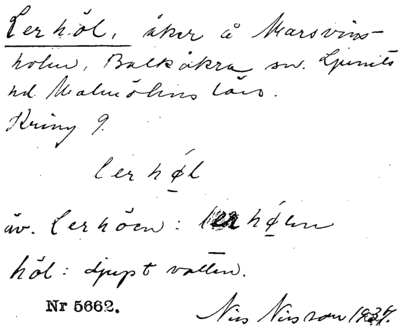 Lerhöl, åker å Marsvins-
holm, Balkåkra sn. Ljunits
hd. Malmöhus län.
Kring 9.
lerhøl
äv. Lerhöen: hølen
höl: djupt vatten.
Nr 5662.
Nils Nilsson 1934.